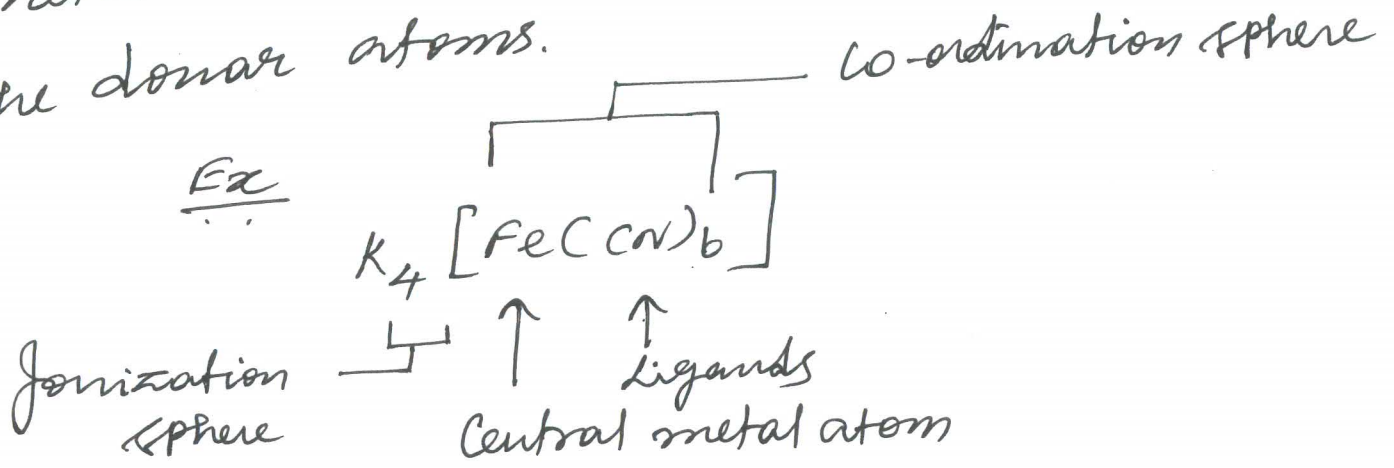 donar atoms.
Co-ordination sphere
Ex
K4 [Fe(CN)6]
Ionization
sphere
Ligands
Central metal atom